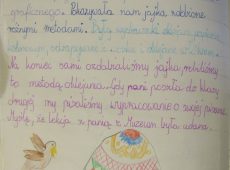 graficznego. Pokazywała nam jajka zdobione
różnymi metodami. Były
Na koniec sami ozdabialiśmy jajka robiliśmy
to metodą oklejania. Gdy pani poszła do klasy
drugiej my pisaliśmy wypracowanie o swojej pisance.
Myślę, że lekcja z panią z Muzeum była udana.